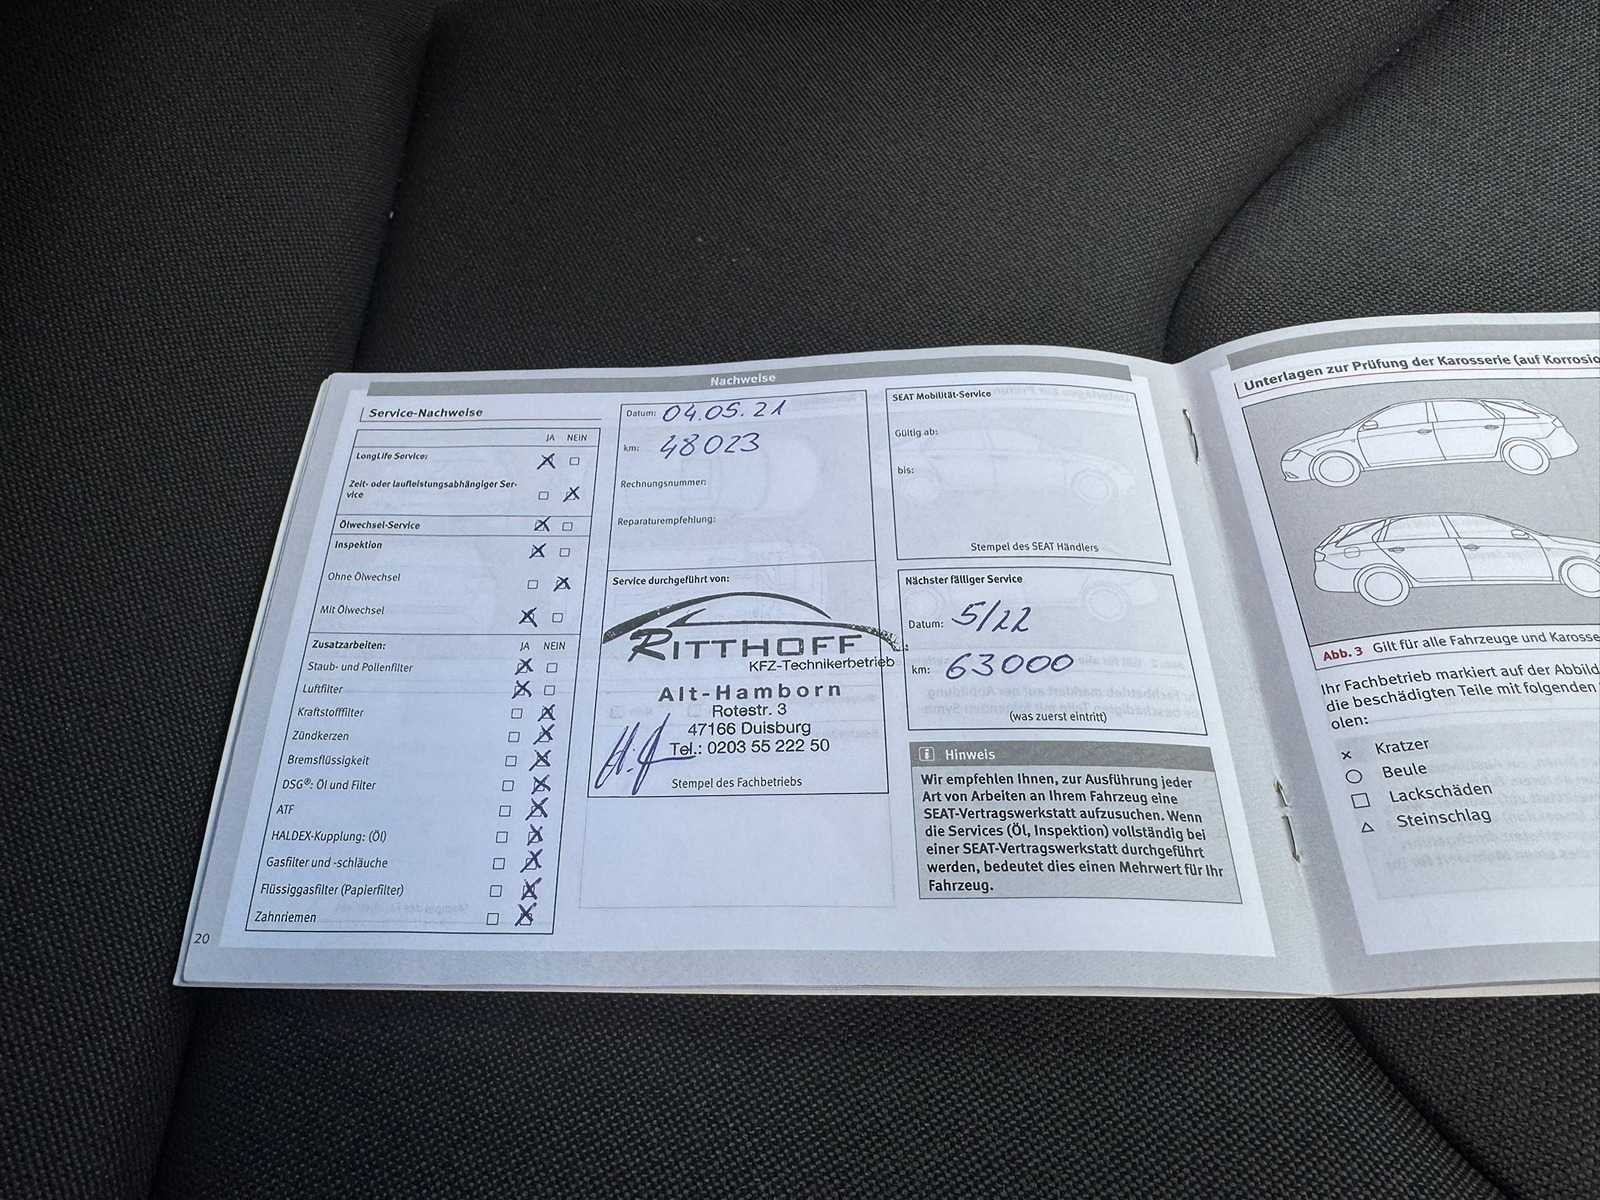 Nachweise
Service-Nachweise
JA NEIN
LongLife Service:
Zeit- oder laufleistungsabhängiger Ser-
vice
Ölwechsel-Service
Inspektion
Ohne Ölwechsel
Mit Ölwechsel
Zusatzarbeiten: JA NEIN
Staub- und Pollenfilter
Luftfilter
Kraftstofffilter
Zündkerzen
Bremsflüssigkeit
DSG®: Öl und Filter
ATF
HALDEX-Kupplung: (Öl)
Gasfilter und -schläuche
Flüssiggasfilter (Papierfilter)
Zahnriemen
20
Datum: 04.05.21
km: 48023
Rechnungsnummer:
Reparaturempfehlung:
Service durchgeführt von:
RITTHOFF
KFZ-Technikerbetrieb
Alt-Hamborn
Rotestr. 3
47166 Duisburg
Tel.: 0203 55 222 50
Stempel des Fachbetriebs
SEAT Mobilität-Service
Gültig ab:
bis:
Stempel des SEAT Händlers
Nächster fälliger Service
Datum: 5/22
km: 63000
(was zuerst eintritt)
i Hinweis
Wir empfehlen Ihnen, zur Ausführung jeder
Art von Arbeiten an Ihrem Fahrzeug eine
SEAT-Vertragswerkstatt aufzusuchen. Wenn
die Services (Öl, Inspektion) vollständig bei
einer SEAT-Vertragswerkstatt durchgeführt
werden, bedeutet dies einen Mehrwert für Ihr
Fahrzeug.
Unterlagen zur Prüfung der Karosserie (auf Korrosio
Abb. 3 Gilt für alle Fahrzeuge und Karosse
Ihr Fachbetrieb markiert auf der Abbild
die beschädigten Teile mit folgenden
olen:
Kratzer
Beule
Lackschäden
Steinschlag